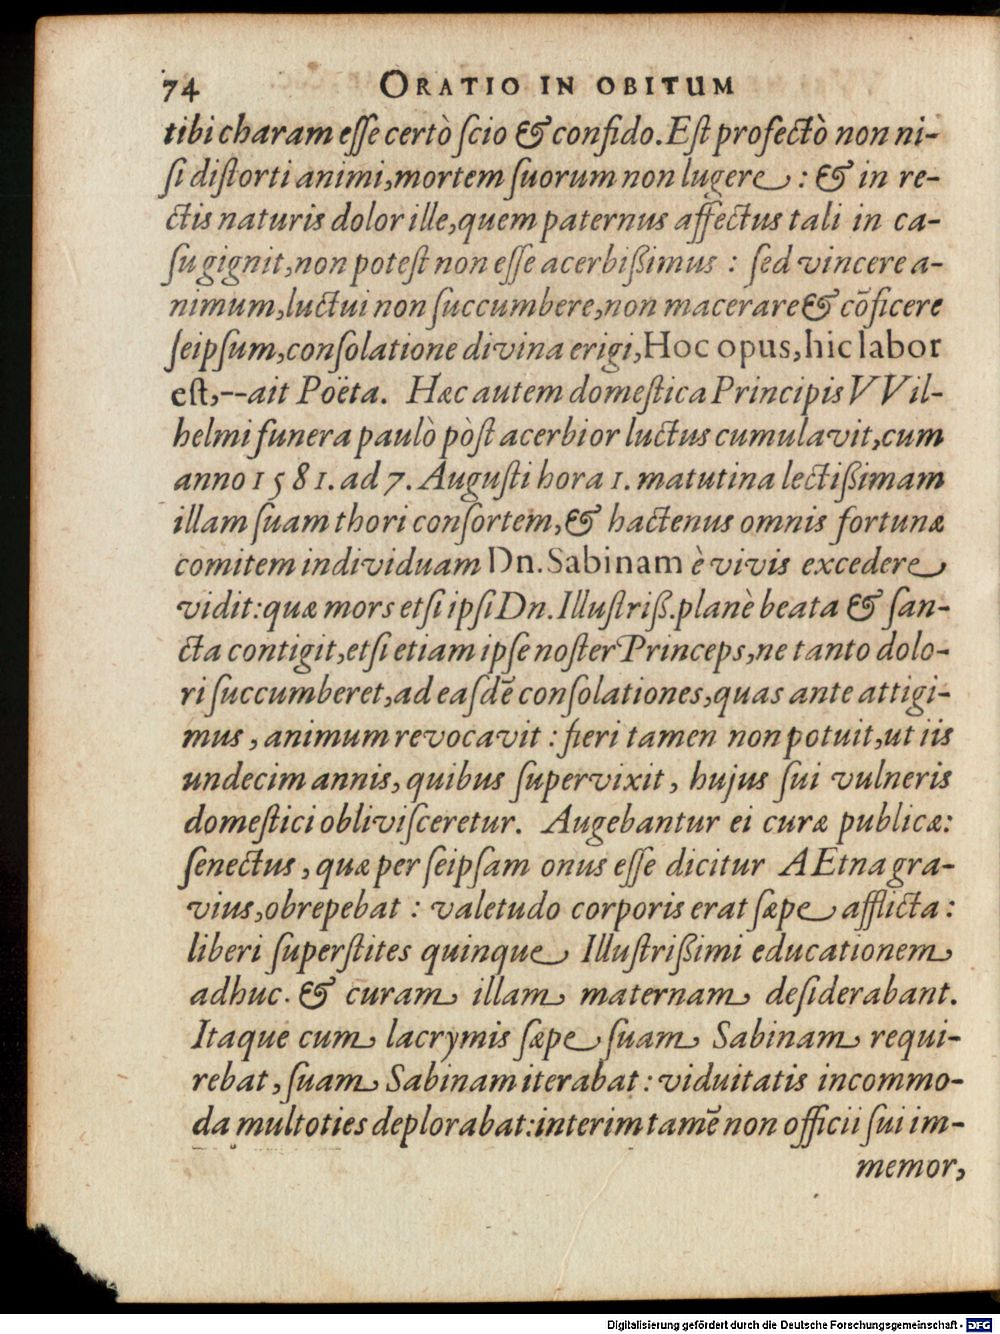 74 ORATIO IN OBITUM
tibi charam eſſe certò ſcio & confido. Eſt profectò non ni-
ſi diſtorti animi, mortem ſuorum non lugere : & in re-
ctis naturis dolor ille, quem paternus affectus tali in ca-
ſu gignit, non poteſt non eſſe acerbißimus : ſed vincere a-
nimum, luctui non ſuccumbere, non macerare & cōficere
ſeipſum, conſolatione divina erigi, Hoc opus, hic labor
eſt, -- ait Poëta. Hæc autem domeſtica Principis VVil-
helmi funera paulò pòſt acerbior luctus cumulavit, cum
anno 1581. ad 7. Auguſti hora 1. matutina lectißimam
illam ſuam thori conſortem, & hactenus omnis fortunæ
comitem individuam Dn. Sabinam è vivis excedere
vidit: quæ mors etſi ipſi Dn. Illuſtriß. planè beata & ſan-
cta contigit, etſi etiam ipſe noſter Princeps, ne tanto dolo-
ri ſuccumberet, ad eaſdē conſolationes, quas ante attigi-
mus, animum revocavit : fieri tamen non potuit, ut iis
undecim annis, quibus ſupervixit, hujus ſui vulneris
domeſtici obliviſceretur. Augebantur ei curæ publicæ:
ſenectus, quæ per ſeipſam onus eſſe dicitur AEtna gra-
vius, obrepebat : valetudo corporis erat ſæpe afflicta :
liberi ſuperſtites quinque Illuſtrißimi educationem
adhuc. & curam illam maternam deſiderabant.
Itaque cum lacrymis ſæpe ſuam Sabinam requi-
rebat, ſuam Sabinam iterabat : viduitatis incommo-
da multoties deplorabat: interim tamē non officii ſui im-
memor,
Digitalisierung gefördert durch die Deutsche Forschungsgemeinschaft - DFG